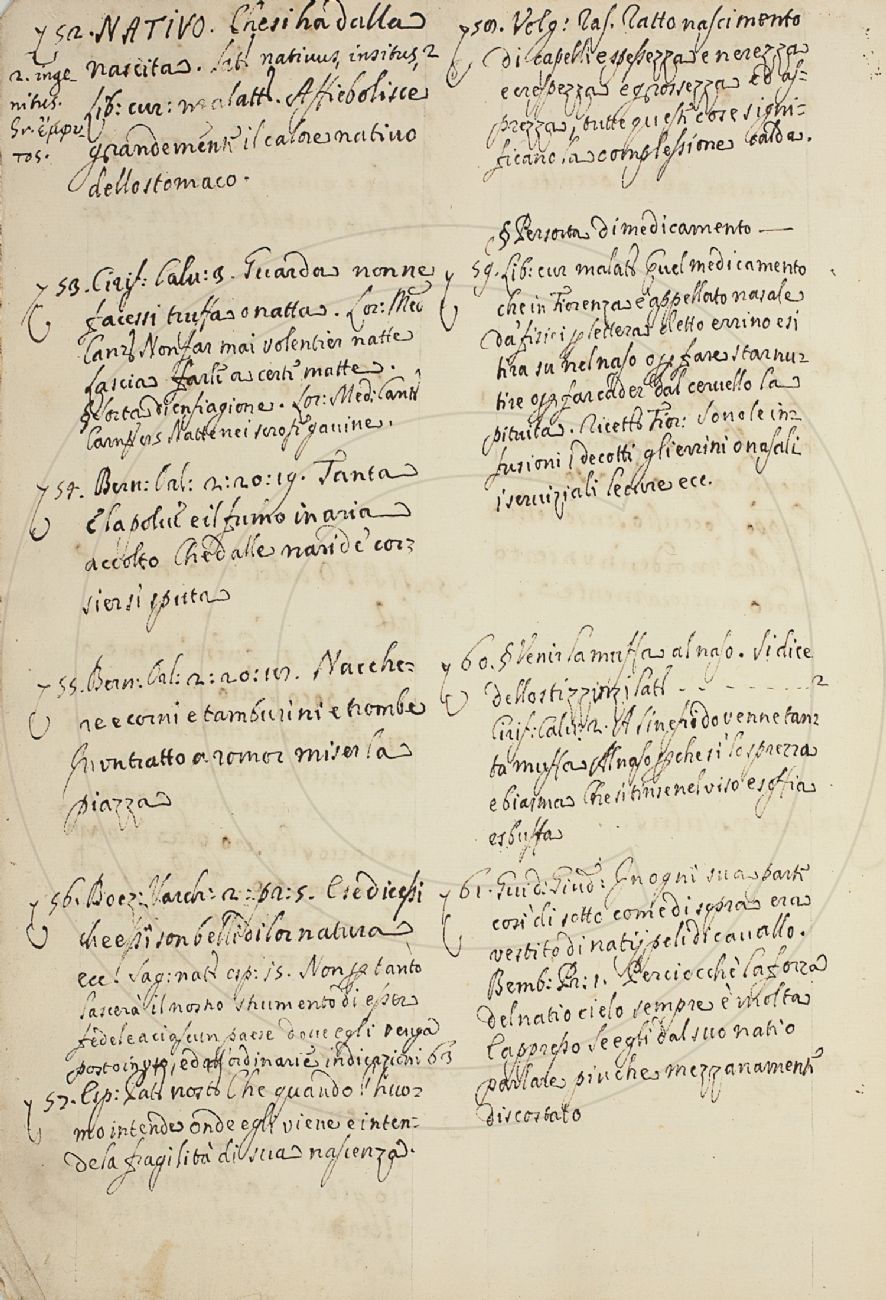 52. NATIVO. Che si há dalla
nascita. Lat: nativus, insitus, 2
2. inge
nitus.
Gr. ἔμφυ-
τος.
Lib: cur: malatt. Affiebolisce
grandemente il calore nativo
dello stomaco.
53. Cirif: Calv: 3. Guarda non ne
facessi truffa o natta. Lor: Med
Canz: Non far mai volentier natte
Lascia farle a certi matte.
§ Sorta di enfiagione. Lor: Med: Canti
Natte nei scrofe gavine.
54. Bern: Orl: 2: 20: 19. Tanta
È la polve e il fumo in aria
accolto Che dalle nari de' cor-
sier si sputa
55. Bern: Orl: 2: 20: Nacche-
re e corni e tamburini e trombe
In un tratto a romor miser la
piazza
56. Boez: Varch: 2: pr: 5. E se dicessi
che essi son belli di lor natura
ecc. Sag: nat: esp: 15. Non per tanto
lascerà il nostro strumento di esser
fedele a ciascun paese dove egli venga
posto in uso, ed alle ordinarie indicazioni 63
57. Esp: Pat: nost: Che quando l'huo-
mo intende onde egli viene e inten-
de la fragilità di sua nascenza.
58. Volg: Ras. Ratto nascimento
di capelli e spessezza e nerezza
e crespezza e grossezza ed as-
prezza, tutte queste cose signi-
ficano la complessione calda.
§ Per sorta di medicamento —
59. Lib: cur malatt: Quel medicamento
che in Fiorenza è appellato nasale
da' fisici letterati è detto errino e si
tira su nel naso o per fare starnu-
tire o per far cader dal cervello la
pituita. Ricett: Fior: Sono le in-
fusioni i decotti gli errini o nasali
i serviziali le cure ecc.
60. § Venir la muffa al naso. Si dice
dello stizzirsi Lat: - - - - - 2
Cirif: Calv: 2. A Sinefido venne tan-
ta muffa Al naso perche si le sprezza
e biasma Che si tinse nel viso e soffia
e sbuffa
61. Guid: Giud: In ogni sua parte
così di sotto come di sopra era
vestito di natij peli di cavallo.
Bemb: Pr: 1. Perciocchè la forza
del natio cielo sempre è molta
E appresso Se egli dal suo natio
parlare più che mezzanamente
discostato